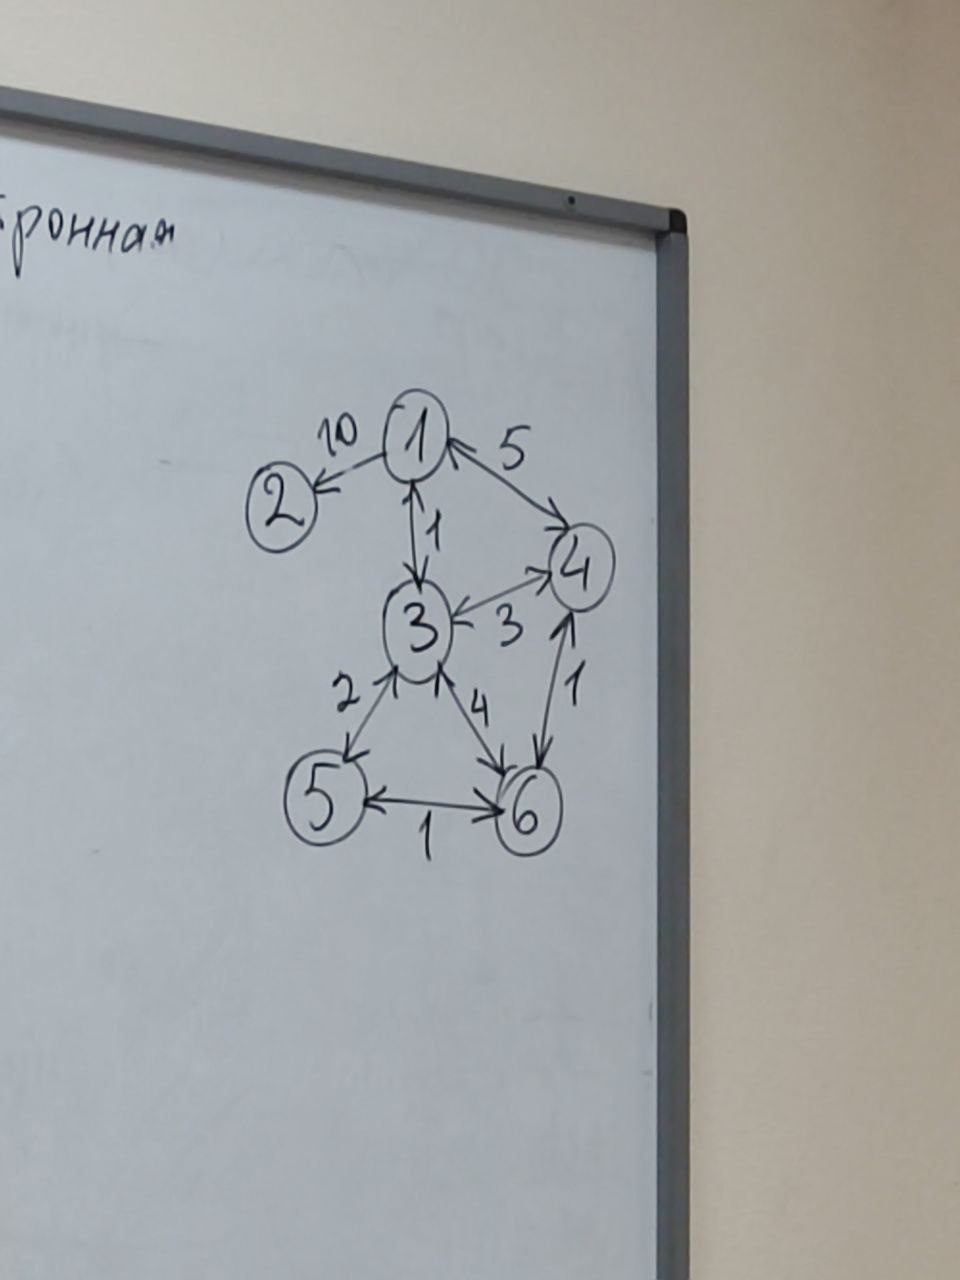 тронная
10
1
5
2
1
4
3
3
2
4
1
5
6
1